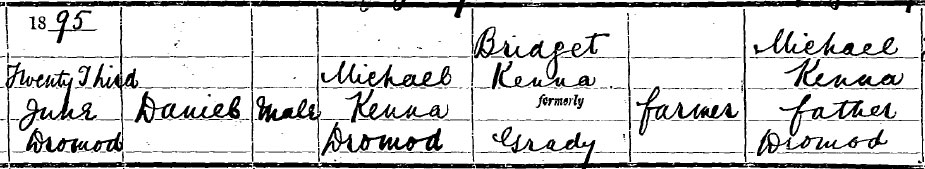 1895
Bridget
Michael
Twenty Third
Michael
Kenna
Kenna
June
Daniel
Male
Kenna
formerly
farmer
father
Dromod
Dromod
Grady
Dromod